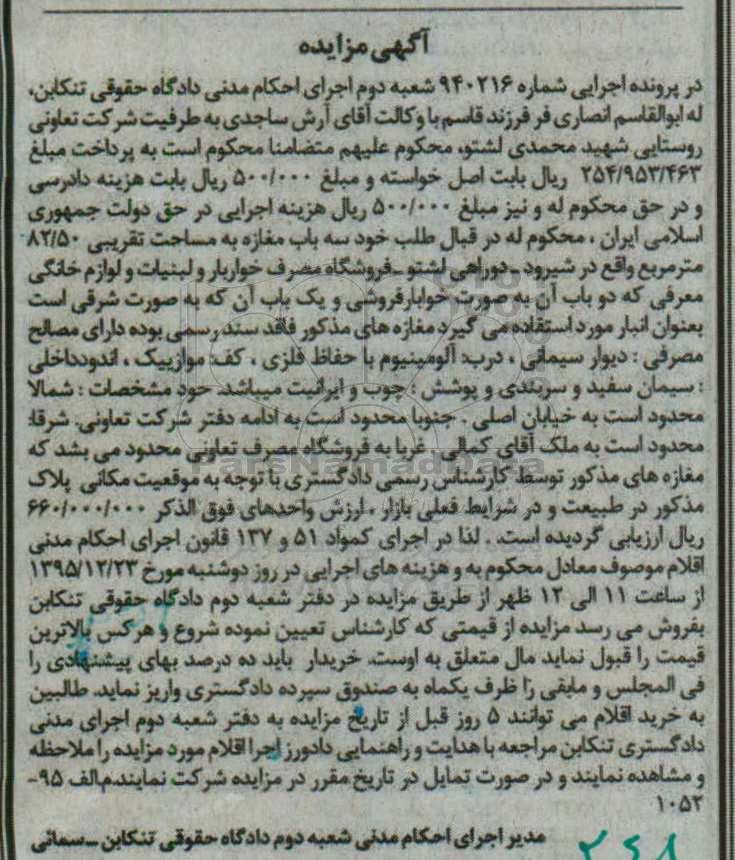 آگهی مزایده
در پرونده اجرایی شماره ۹۴۰۲۱۶ شعبه دوم اجرای احکام مدنی دادگاه حقوقی تنکابن،
له ابوالقاسم انصاری فر فرزند قاسم با وکالت آقای آرش ساجدی به طرفیت شرکت تعاونی
روستایی شهید محمدی لشتو، محکوم علیهم متضامنا محکوم است به پرداخت مبلغ
۲۵۴/۹۵۳/۴۶۳ ریال بابت اصل خواسته و مبلغ ۵۰۰/۰۰۰ ریال بابت هزینه دادرسی
و در حق محکوم له و نیز مبلغ ۵۰۰/۰۰۰ ریال هزینه اجرایی در حق دولت جمهوری
اسلامی ایران ، محکوم له در قبال طلب خود سه باب مغازه به مساحت تقریبی ۸۲/۵۰
مترمربع واقع در شیرود ـ دوراهی لشتو ـ فروشگاه مصرف خواربار و لبنیات و لوازم خانگی
معرفی که دو باب آن به صورت خوابارفروشی و یک باب آن که به صورت شرقی است
بعنوان انبار مورد استفاده می گیرد مغازه های مذکور فاقد سند رسمی بوده دارای مصالح
مصرفی : دیوار سیمانی ، درب: آلومینیوم با حفاظ فلزی ، کف: موازییک ، اندودداخلی
: سیمان سفید و سربندی و پوشش : چوب و ایرانیت میباشد. حود مشخصات : شمالا
محدود است به خیابان اصلی . جنوبا محدود است به ادامه دفتر شرکت تعاونی. شرقا:
محدود است به ملک آقای کمالی . غربا به فروشگاه مصرف تعاونی محدود می بشد که
ParsNamadData
مغازه های مذکور توسط کارشناس رسمی دادگستری با توجه به موقعیت مکانی پلاک
مذکور در طبیعت و در شرایط فعلی بازار ، ارزش واحدهای فوق الذکر ۶۶۰/۰۰۰/۰۰۰
ریال ارزیابی گردیده است . لذا در اجرای کمواد ۵۱ و ۱۳۷ قانون اجرای احکام مدنی
اقلام موصوف معادل محکوم به و هزینه های اجرایی در روز دوشنبه مورخ ۱۳۹۵/۱۲/۲۳
از ساعت ۱۱ الی ۱۲ ظهر از طریق مزایده در دفتر شعبه دوم دادگاه حقوقی تنکابن
بفروش می رسد مزایده از قیمتی که کارشناس تعیین نموده شروع و هرکس بالاترین
قیمت را قبول نماید مال متعلق به اوست. خریدار باید ده درصد بهای پیشنهادی را
فی المجلس و مابقی را ظرف یکماه به صندوق سپرده دادگستری واریز نماید. طالبین
به خرید اقلام می توانند ۵ روز قبل از تاریخ مزایده به دفتر شعبه دوم اجرای مدنی
دادگستری تنکابن مراجعه با هدایت و راهنمایی دادورز اجرا اقلام مورد مزایده را ملاحظه
و مشاهده نمایند و در صورت تمایل در تاریخ مقرر در مزایده شرکت نمایند.م‌الف ۹۵-
۱۰۵۲
مدیر اجرای احکام مدنی شعبه دوم دادگاه حقوقی تنکابن ــ سمائی